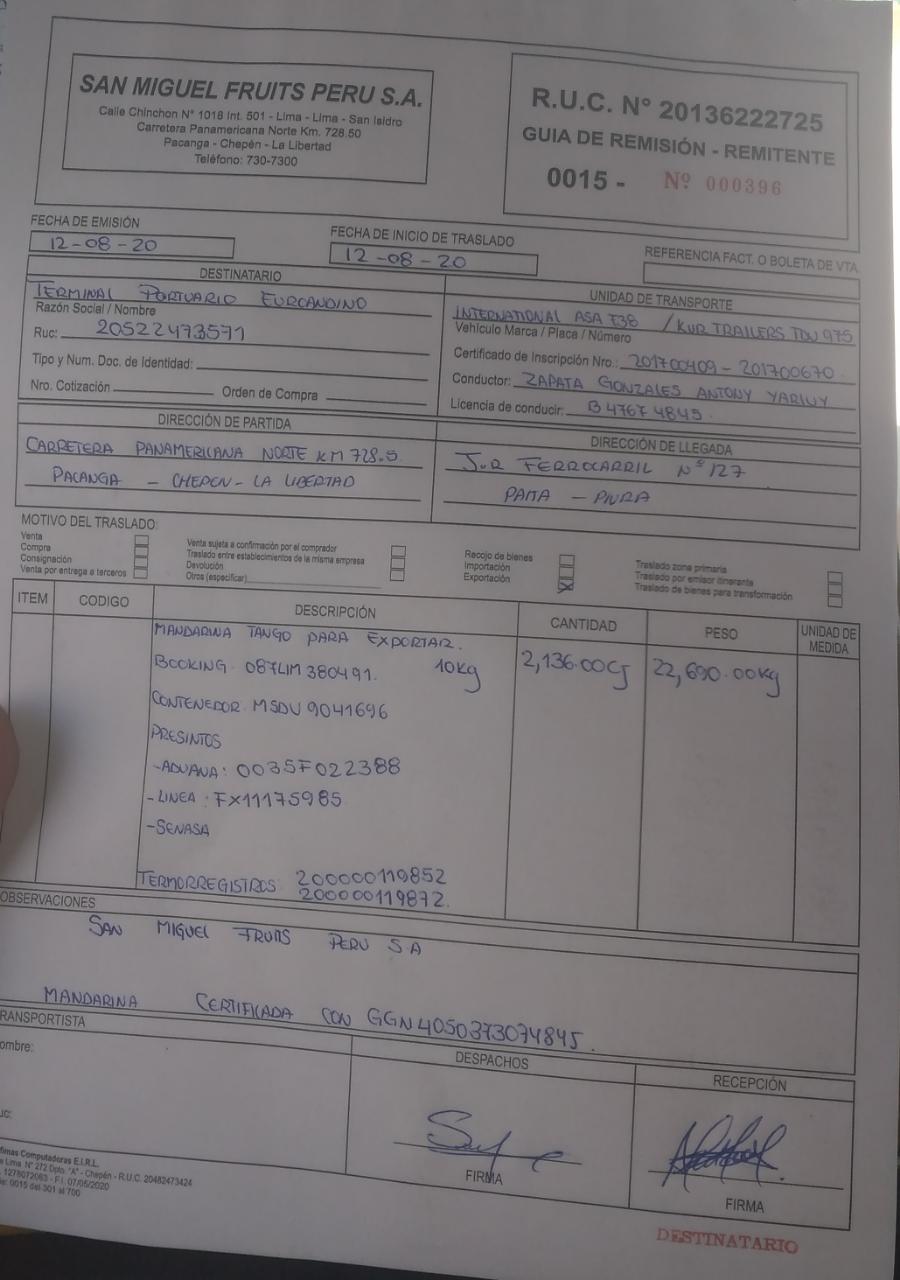 SAN MIGUEL FRUITS PERU S.A.
Calle Chinchon N° 1018 Int. 501 - Lima - Lima - San Isidro
Carretera Panamericana Norte Km. 728.50
Pacanga - Chepén - La Libertad
Teléfono: 730-7300
R.U.C. N° 20136222725
GUIA DE REMISIÓN - REMITENTE
0015 - Nº 000396
FECHA DE EMISIÓN
12-08-20
FECHA DE INICIO DE TRASLADO
12-08-20
REFERENCIA FACT. O BOLETA DE VTA.
DESTINATARIO
TERMINAL PORTUARIO EUROANDINO
Razón Social / Nombre
Ruc: 20522473571
Tipo y Num. Doc. de Identidad:
Nro. Cotización Orden de Compra
UNIDAD DE TRANSPORTE
INTERNATIONAL ASA 738 / KUR TRAILERS TDU 975
Vehículo Marca / Placa / Número
Certificado de Inscripción Nro.: 201700409 - 201700670.
Conductor: ZAPATA GONZALES ANTONY
Licencia de conducir: B 4767 4845.
DIRECCIÓN DE PARTIDA
CARRETERA PANAMERICANA NORTE KM 728.5
PACANGA - CHEPEN - LA LIBERTAD
DIRECCIÓN DE LLEGADA
FERROCARRIL N° 127
PAITA - PIURA
MOTIVO DEL TRASLADO:
Venta
Compra
Consignación
Venta por entrega a terceros
Venta sujeta a confirmación por el comprador
Traslado entre establecimientos de la misma empresa
Devolución
Otros (especificar)
Recojo de bienes
Importación
Exportación
Traslado zona primaria
Traslado por emisor itinerante
Traslado de bienes para transformación
ITEM CODIGO DESCRIPCIÓN CANTIDAD PESO UNIDAD DE MEDIDA
MANDARINA TANGO PARA EXPORTAR.
BOOKING 087LIM380491. 10kg 2,136.00CJ 22,690.00kg
CONTENEDOR MSDU 9041696
PRESINTOS
-ADUANA: 0035F022388
-LINEA: FX11175985
-SENASA
TERMORREGISTROS: 200000119852
200000119872.
OBSERVACIONES
SAN MIGUEL FRUITS PERU S A
MANDARINA CERTIFICADA CON GGN 4050373074845.
RANSPORTISTA
ombre:
uc:
DESPACHOS
FIRMA
RECEPCIÓN
FIRMA
fimas Computadoras E.I.R.L.
a Lima N° 272 Dpto. "A" - Chepén - R.U.C. 20482473424
. 1278072063 - F.I. 07/05/2020
ie: 0015 del 301 al 700
DESTINATARIO